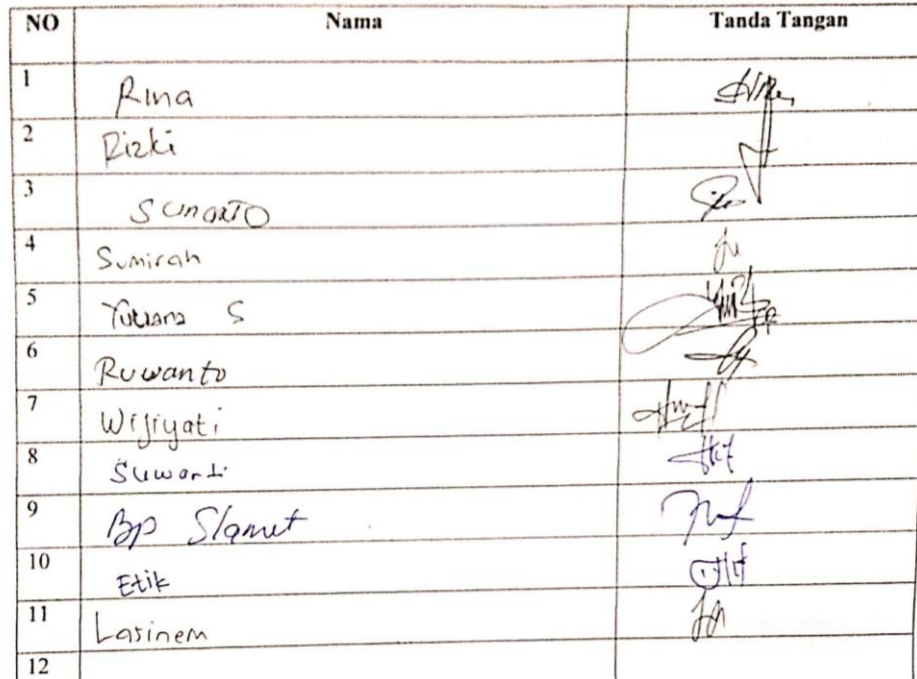 NO Nama Tanda Tangan
1 Rina
2 Rizki
3 Sunarto
4 Sumirah
5 Yuliana S
6 Ruwanto
7 Wijiyati
8 Suwardi
9 Bp Slamet
10 Etik
11 Lasinem
12